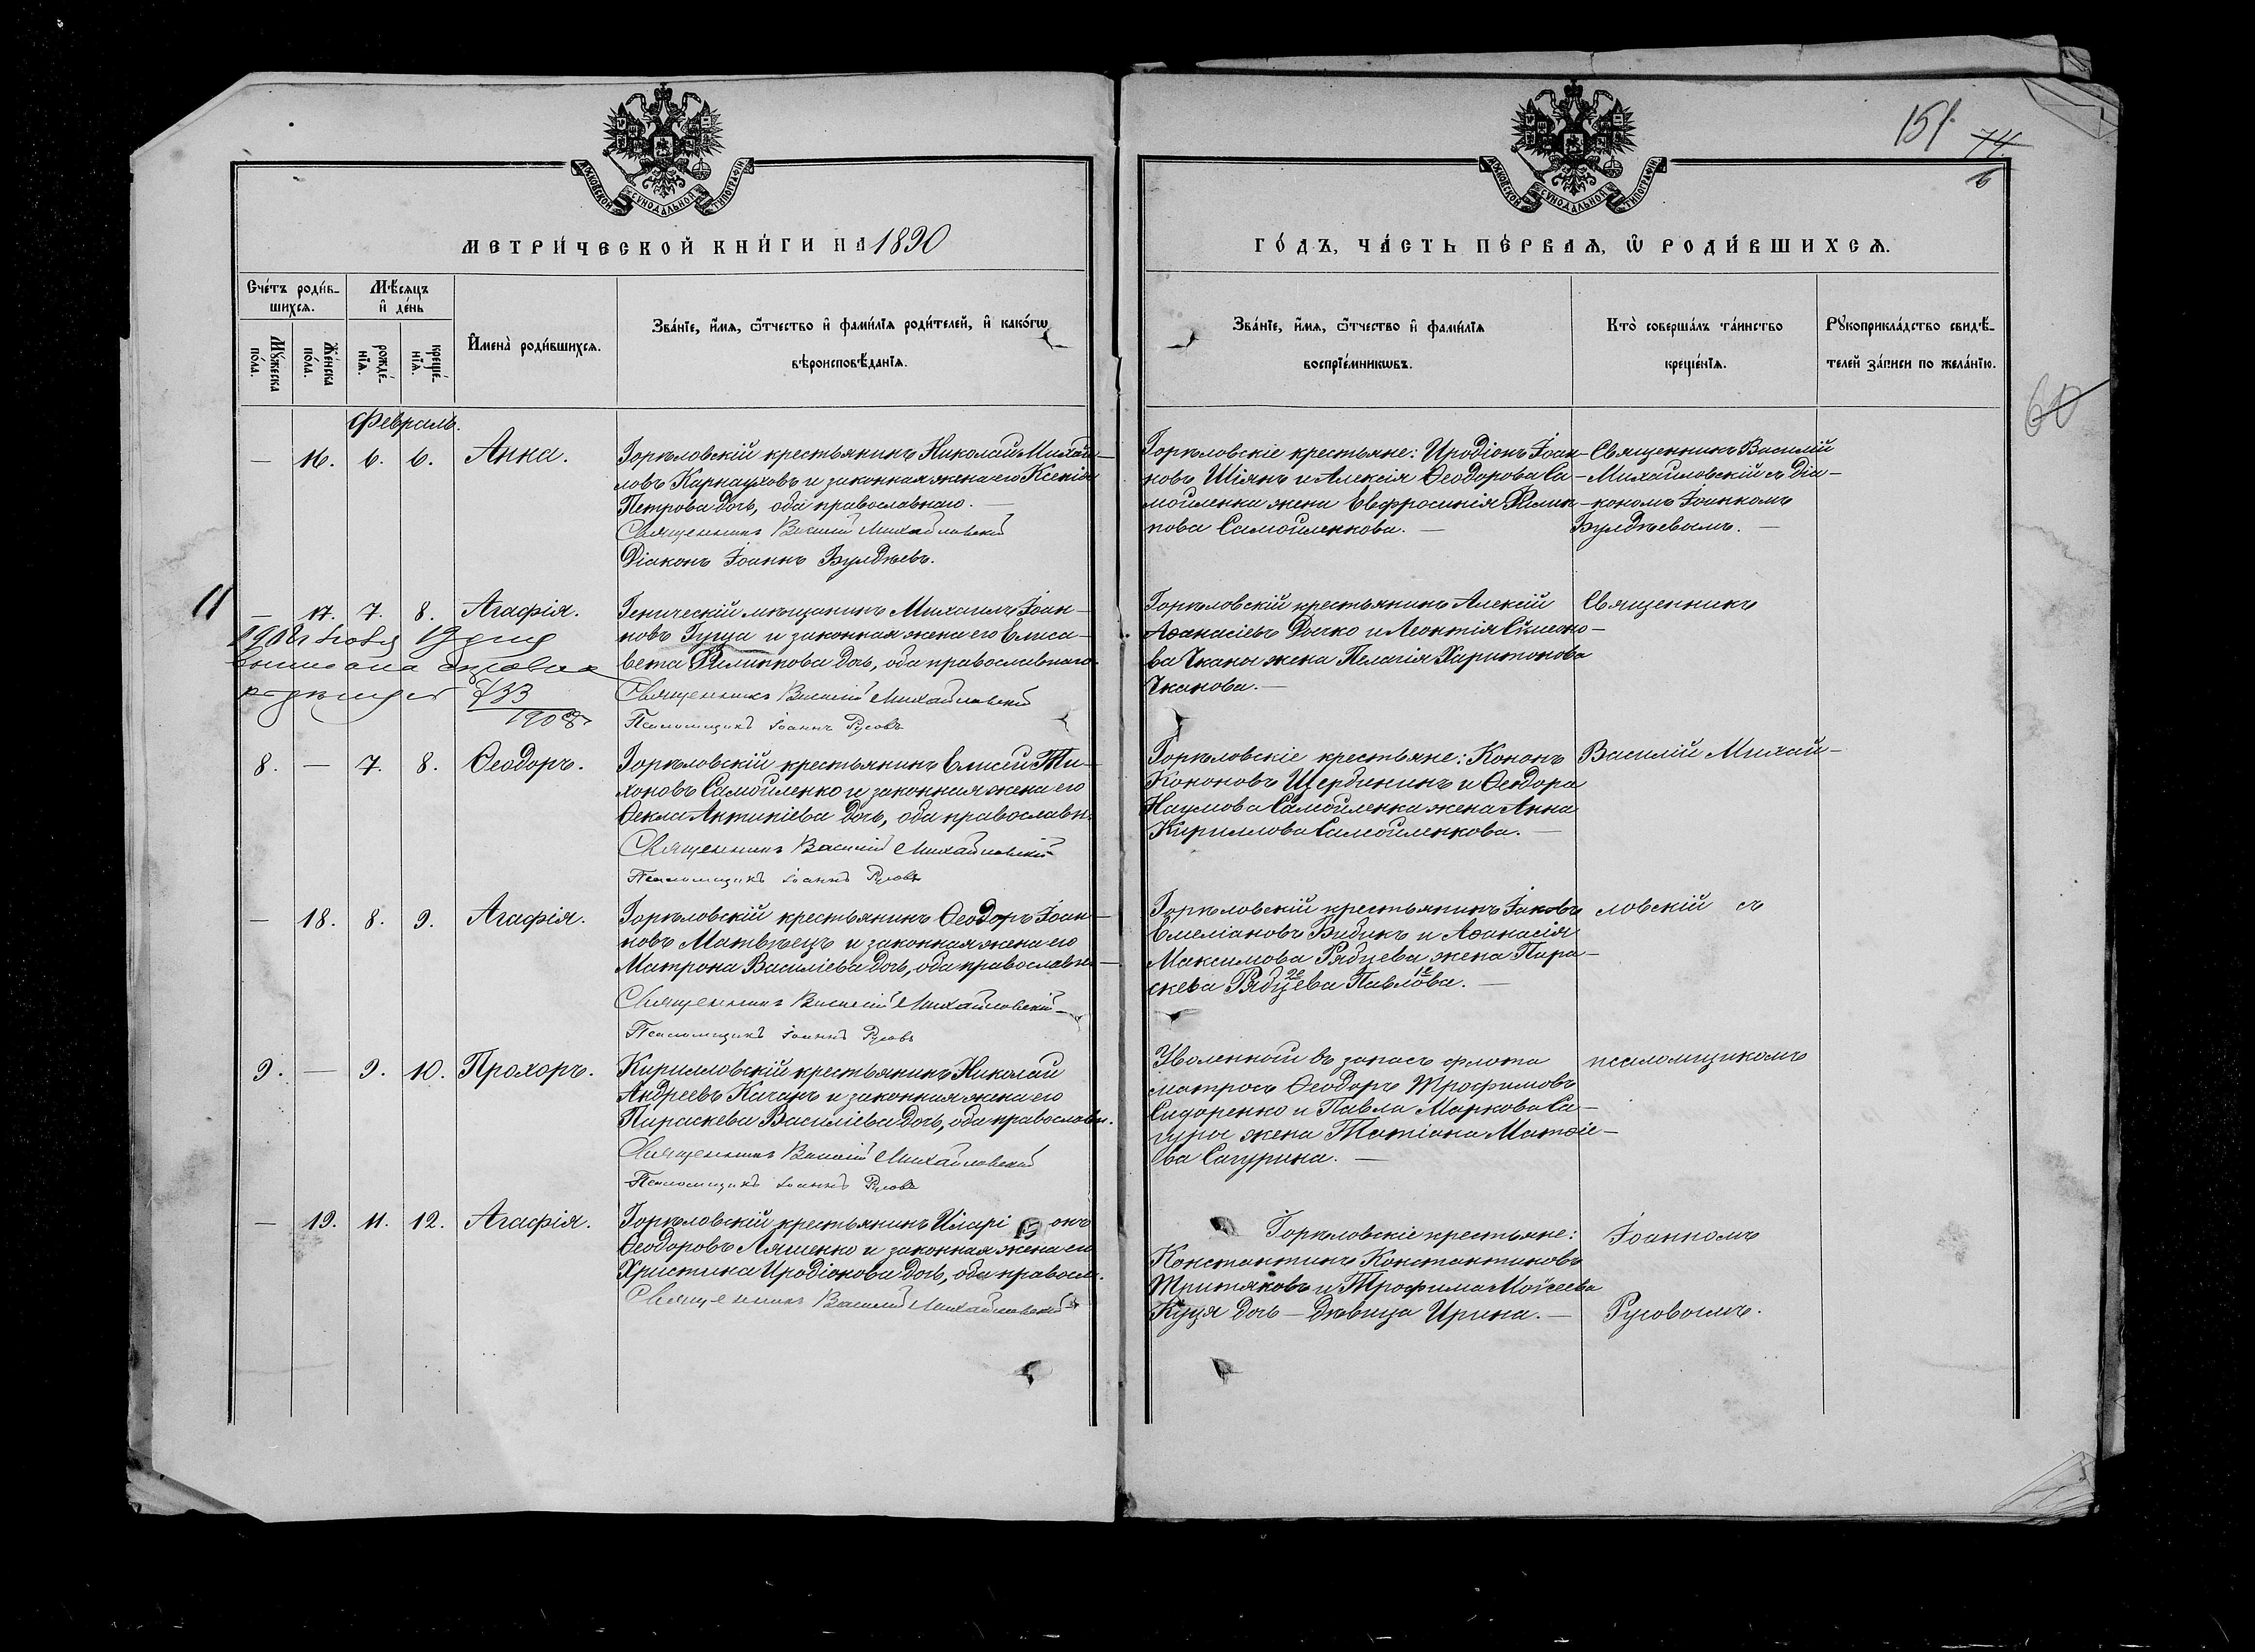 151
74
6
60
МОСКОВСКОЙ СѴНОДАЛЬНОЙ ТИПОГРАФІИ
МОСКОВСКОЙ СѴНОДАЛЬНОЙ ТИПОГРАФІИ
МЕТРИ́ЧЕСКОЙ КНИ́ГИ НА 1890
ГО́ДЪ, ЧА́СТЬ ПЕ́РВАѦ, Ѿ РОДИ́ВШИХСѦ.
Сче́тъ роди́в-
шихсѧ.
Мꙋжеска по́ла.
Же́нска по́ла.
Мѣ́сяцъ
и҆ де́нь
рожде́-
нїѧ.
креще́-
нїѧ.
И҆мена̀ роди́вшихсѧ.
Зва́нїе, и҆́мѧ, ѻ҆́тчество и҆ фами́лїѧ роди́телей, и҆ како́гѡ
вѣроисповѣ́данїѧ.
Зва́нїе, и҆́мѧ, ѻ҆́тчество и҆ фами́лїѧ
воспрїе́мникѡвъ.
Кто̀ соверша́лъ та́инство
креще́нїѧ.
Рꙋкоприкла́дство свидѣ́-
телей за́писи по жела́нїю.
Февраль.
— 16. 6. 6. Анна.
Горѣловскій крестьянинъ Николай Михай-
ловъ Карнауховъ и законная жена его Ксенія
Петрова дочь, оба православнаго. —
Священникъ Василій Михайловскій
Діаконъ Іоаннъ Булдѣевъ.
Горѣловскіе крестьяне: Иродіонъ Іоан-
новъ Шіянъ и Алексія Ѳеодорова Са-
мойленка жена Евфросинія Филип-
пова Самойленкова. —
Священникъ Василій
Михайловскій съ діа-
кономъ Іоанномъ
Булдѣевымъ. —
11
— 17. 7. 8. Агафія.
1908
733
1908
Геническій мѣщанинъ Михаилъ Іоан-
новъ Гуща и законная жена его Елиса-
вета Филиппова дочь, оба православнаго.
Священникъ Василій Михайловскій
Псаломщикъ Іоаннъ Русовъ
Горѣловскій крестьянинъ Алексій
Аѳанасіевъ Дычко и Леонтія Симеоно-
ва Чкана жена Пелагія Харитонова
Чканова. —
Священникъ
8. — 7. 8. Ѳеодоръ.
Горѣловскій крестьянинъ Елисей Ти-
хоновъ Самойленко и законная жена его
Ѳекла Антипіева дочь, оба православн.
Священникъ Василій Михайловскій
Псаломщикъ Іоаннъ Русовъ
Горѣловскіе крестьяне: Кононъ
Кононовъ Щербининъ и Ѳеодора
Наумова Самойленка жена Анна
Кириллова Самойленкова. —
Василій Михай-
— 18. 8. 9. Агафія.
Горѣловскій крестьянинъ Ѳеодоръ Іоан-
новъ Матвѣецъ и законная жена его
Матрона Василіева дочь, оба православн-
Священникъ Василій Михайловскій
Псаломщикъ Іоаннъ Русовъ
Горѣловскій крестьянинъ Іаковъ
Емеліановъ Бибикъ и Аѳанасія
Максимова Рябцева жена Пара-
скева Рябцева Павлова. —
ловскій съ
9. — 9. 10. Прохоръ.
Кирилловскій крестьянинъ Николай
Андреевъ Качанъ и законная жена его
Параскева Василіева дочь, оба православн.
Священникъ Василій Михайловскій
Псаломщикъ Іоаннъ Русовъ
Уволенный въ запасъ флота
матросъ Ѳеодоръ Трофимовъ
Сидоренко и Павла Маркова Са-
гуры жена Татіана Матѳіе-
ва Сагурина. —
псаломщикомъ
— 19. 11. 12. Агафія.
Горѣловскій крестьянинъ Иларіонъ
Ѳеодоровъ Ляшенко и законная жена его
Христина Иродіонова дочь, оба правосл.
Священникъ Василій Михайловскій
Горѣловскіе крестьяне:
Константинъ Константиновъ
Третяковъ и Трофима Моѵсеева
Куця дочь — дѣвица Ирина. —
Іоанномъ
Русовымъ.